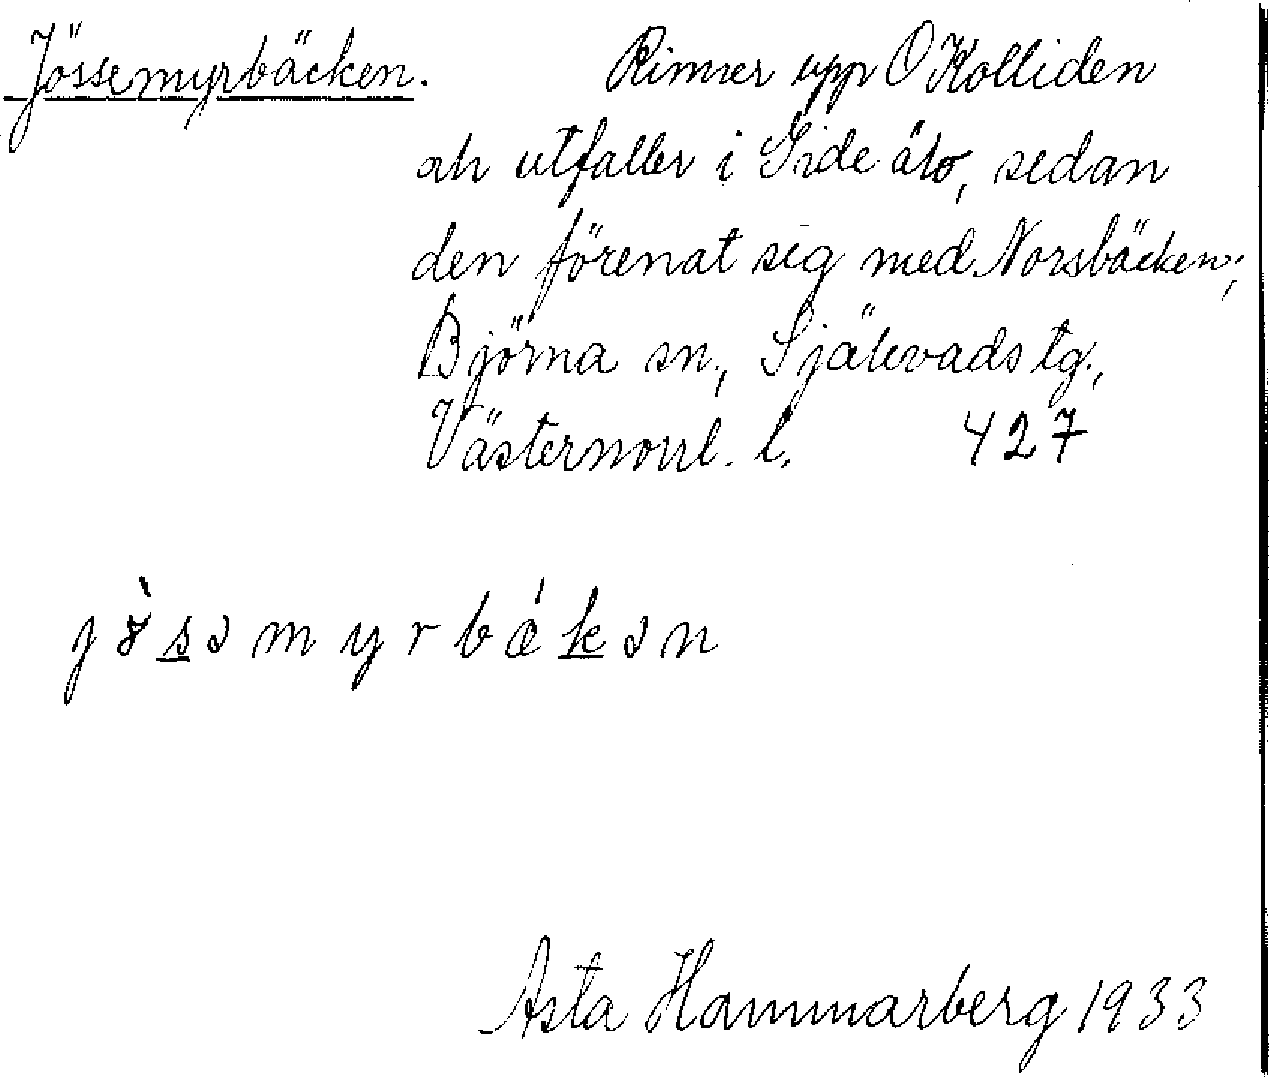 Jössemyrbäcken. Rinner upp O Kolliden
och utfaller i Gide älv, sedan
den förenat sig med Norsbäcken;
Björna sn., Själevads tg.,
Västernorrl. l. 427
Asta Hammarberg 1933